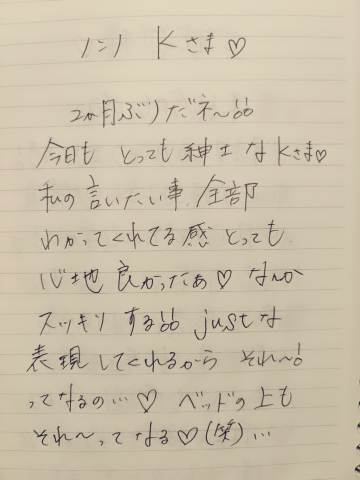 ノンノ Kさま♡
2か月ぶりだネ〜!!
今日も とっても 紳士 なKさま♡
私の 言いたい事 全部
わかってくれてる感 とっても
心地 良かったぁ♡ なんか
スッキリ する!! justな
表現 してくれるから それ〜!
ってなるの…♡ ベッドの上も
それ〜ってなる♡(笑)…